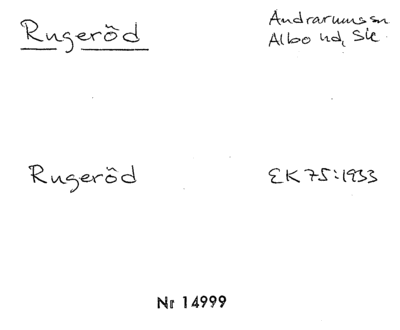 Rugeröd
Andrarums sn
Albo hd, Sk
Rugeröd
EK 75:1933
Nr 14999